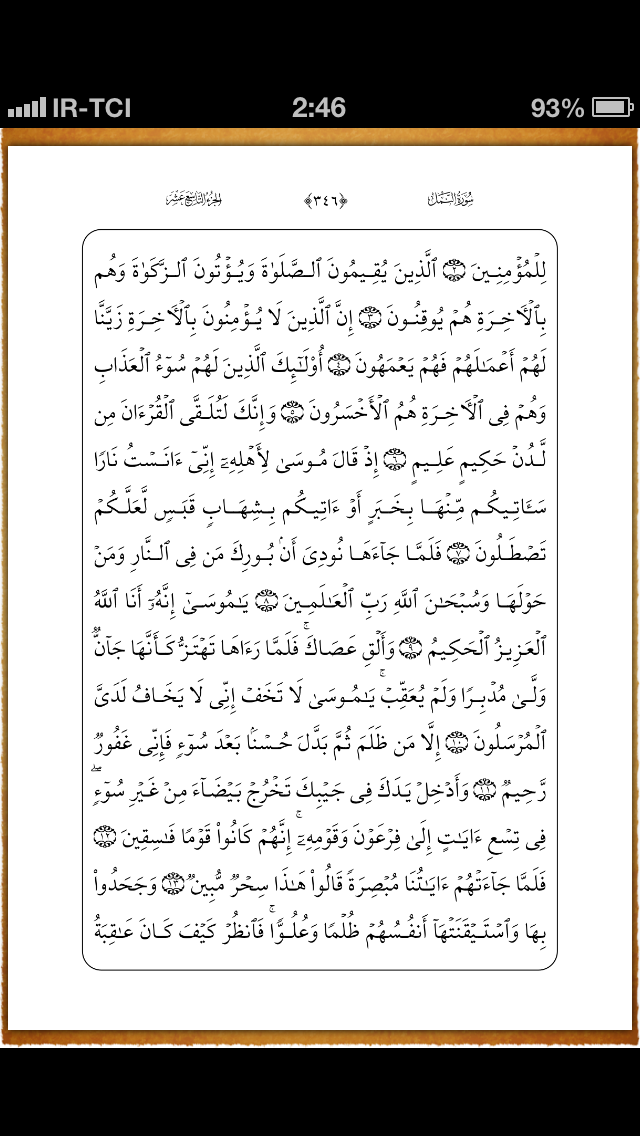 IR-TCI 2:46 93%
سُورَةُ النَّمۡل ﴿٣٤٦﴾ الجُزءُ التَّاسِعَ عَشَرَ
لِلۡمُؤۡمِنِينَ ٢ ٱلَّذِينَ يُقِيمُونَ ٱلصَّلَوٰةَ وَيُؤۡتُونَ ٱلزَّكَوٰةَ وَهُم
بِٱلۡأٓخِرَةِ هُمۡ يُوقِنُونَ ٣ إِنَّ ٱلَّذِينَ لَا يُؤۡمِنُونَ بِٱلۡأٓخِرَةِ زَيَّنَّا
لَهُمۡ أَعۡمَٰلَهُمۡ فَهُمۡ يَعۡمَهُونَ ٤ أُوْلَٰٓئِكَ ٱلَّذِينَ لَهُمۡ سُوٓءُ ٱلۡعَذَابِ
وَهُمۡ فِي ٱلۡأٓخِرَةِ هُمُ ٱلۡأَخۡسَرُونَ ٥ وَإِنَّكَ لَتُلَقَّى ٱلۡقُرۡءَانَ مِن
لَّدُنۡ حَكِيمٍ عَلِيمٍ ٦ إِذۡ قَالَ مُوسَىٰ لِأَهۡلِهِۦٓ إِنِّيٓ ءَانَسۡتُ نَارٗا
سَـَٔاتِيكُم مِّنۡهَا بِخَبَرٍ أَوۡ ءَاتِيكُم بِشِهَابٖ قَبَسٖ لَّعَلَّكُمۡ
تَصۡطَلُونَ ٧ فَلَمَّا جَآءَهَا نُودِيَ أَنۢ بُورِكَ مَن فِي ٱلنَّارِ وَمَنۡ
حَوۡلَهَا وَسُبۡحَٰنَ ٱللَّهِ رَبِّ ٱلۡعَٰلَمِينَ ٨ يَٰمُوسَىٰٓ إِنَّهُۥٓ أَنَا ٱللَّهُ
ٱلۡعَزِيزُ ٱلۡحَكِيمُ ٩ وَأَلۡقِ عَصَاكَۚ فَلَمَّا رَءَاهَا تَهۡتَزُّ كَأَنَّهَا جَآنّٞ
وَلَّىٰ مُدۡبِرٗا وَلَمۡ يُعَقِّبۡۚ يَٰمُوسَىٰ لَا تَخَفۡ إِنِّي لَا يَخَافُ لَدَيَّ
ٱلۡمُرۡسَلُونَ ١٠ إِلَّا مَن ظَلَمَ ثُمَّ بَدَّلَ حُسۡنَۢا بَعۡدَ سُوٓءٖ فَإِنِّي غَفُورٞ
رَّحِيمٞ ١١ وَأَدۡخِلۡ يَدَكَ فِي جَيۡبِكَ تَخۡرُجۡ بَيۡضَآءَ مِنۡ غَيۡرِ سُوٓءٖۖ
فِي تِسۡعِ ءَايَٰتٍ إِلَىٰ فِرۡعَوۡنَ وَقَوۡمِهِۦٓۚ إِنَّهُمۡ كَانُواْ قَوۡمٗا فَٰسِقِينَ ١٢
فَلَمَّا جَآءَتۡهُمۡ ءَايَٰتُنَا مُبۡصِرَةٗ قَالُواْ هَٰذَا سِحۡرٞ مُّبِينٞ ١٣ وَجَحَدُواْ
بِهَا وَٱسۡتَيۡقَنَتۡهَآ أَنفُسُهُمۡ ظُلۡمٗا وَعُلُوّٗاۚ فَٱنظُرۡ كَيۡفَ كَانَ عَٰقِبَةُ